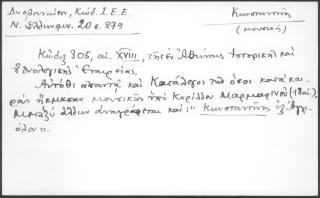 Δυοβουνιώτου, Κώδ. Ι.Ε.Ε.
Κωνσταντῖνος
Ν. Ἑλληνομν. 20 σ. 279
(μουσική)
Κῶδιξ 305, αἰ. XVIII, τῆς ἐν Ἀθήναις Ἱστορικῆς καὶ
Ἐθνολογικῆς Ἑταιρείας.
Αὐτόθι ἀπαντᾷ καὶ Κατάλογος τῶν ὅσοι κατὰ και-
ρὸν ἤκμασαν μουσικῶν ὑπὸ Κυρίλλου Μαρμαρινοῦ (18 αἰ.)
Μεταξὺ ἄλλων ἀναγράφεται καὶ: "Κωνσταντῖνος ἐξ Ἀγχι-
άλου".